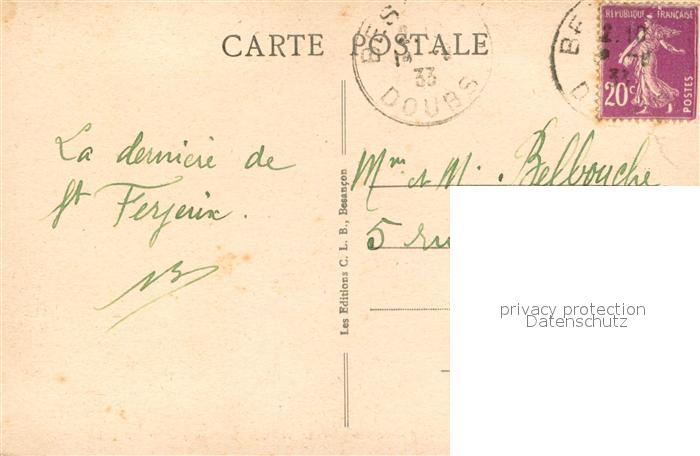 CARTE POSTALE
BES
33
DOUBS
BE
33
D
REPUBLIQUE FRANÇAISE
20c
POSTES
La dernière de
St Ferjeux.
Les Editions C. L. B., Besançon
Mme et M. Belbouche
5 ru
privacy protection
Datenschutz